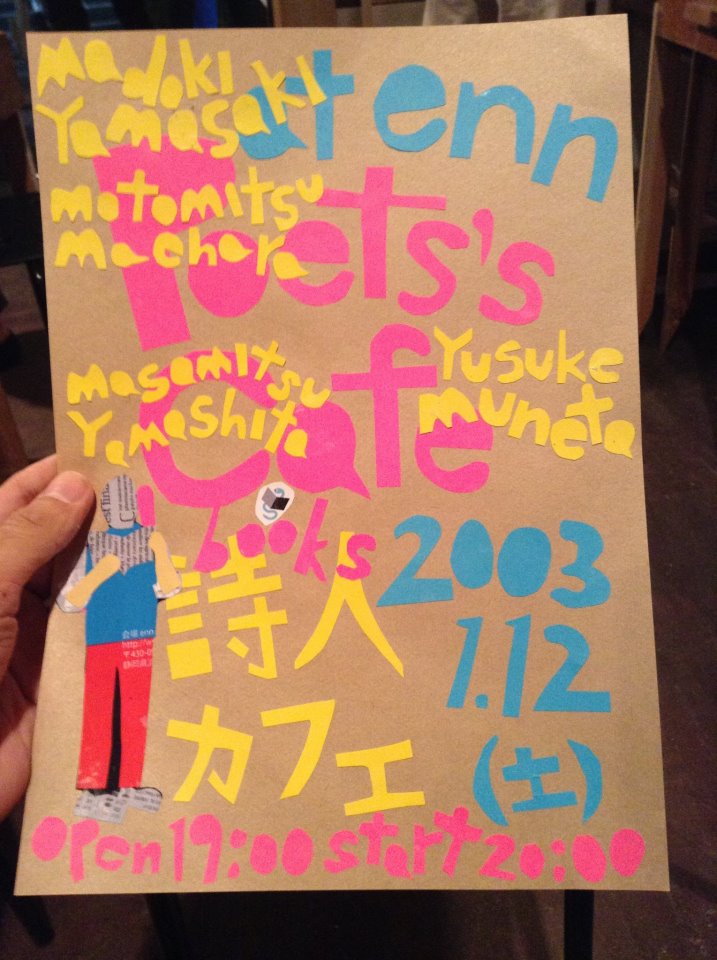 madoki
Yamasaki
at enn
motomitsu
maehara
Poets's
masamitsu
Yamashita
Cafe
Yusuke
muneta
books
詩人
カフェ
2003
1.12
(土)
会場 enn
open 19:00 start 20:00